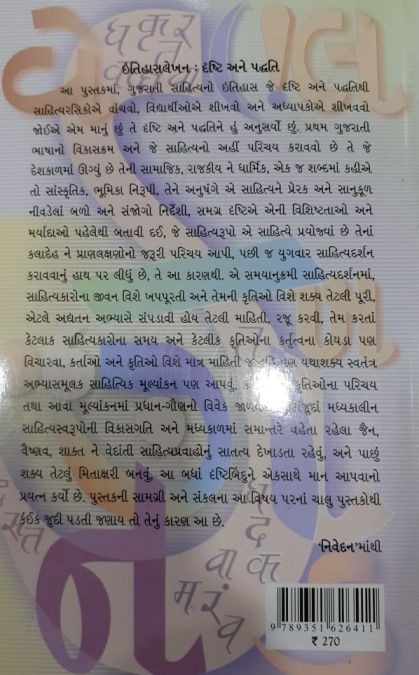 ઇતિહાસલેખન : દૃષ્ટિ અને પદ્ધતિ
આ પુસ્તકમાં, ગુજરાતી સાહિત્યનો ઇતિહાસ જે દૃષ્ટિ અને પદ્ધતિથી
સાહિત્યરસિકોએ વાંચવો, વિદ્યાર્થીઓએ શીખવો અને અધ્યાપકોએ શીખવવો
જોઈએ એમ માનું છું તે દૃષ્ટિ અને પદ્ધતિને હું અનુસર્યો છું. પ્રથમ ગુજરાતી
ભાષાનો વિકાસક્રમ અને જે સાહિત્યનો અહીં પરિચય કરાવવો છે તે જે
દેશકાળમાં ઊગ્યું છે તેની સામાજિક, રાજકીય ને ધાર્મિક, એક જ શબ્દમાં કહીએ
તો સાંસ્કૃતિક, ભૂમિકા નિરૂપી, તેને અનુષંગે એ સાહિત્યને પ્રેરક અને સાનુકૂળ
નીવડેલાં બળો અને સંજોગો નિર્દેશી, સમગ્ર દૃષ્ટિએ એની વિશિષ્ટતાઓ અને
મર્યાદાઓ પહેલેથી બતાવી દઈ, જે સાહિત્યરૂપો એ સાહિત્યે પ્રયોજ્યાં છે તેનાં
કલાદેહ ને પ્રાણલક્ષણોનો જરૂરી પરિચય આપી, પછી જ યુગવાર સાહિત્યદર્શન
કરાવવાનું હાથ પર લીધું છે, તે આ કારણથી. એ સમયાનુક્રમી સાહિત્યદર્શનમાં,
સાહિત્યકારોના જીવન વિશે ખપપૂરતી અને તેમની કૃતિઓ વિશે શક્ય તેટલી પૂરી,
એટલે અદ્યતન અભ્યાસે સંપડાવી હોય તેટલી માહિતી, રજૂ કરવી, તેમ કરતાં
કેટલાક સાહિત્યકારોના સમય અને કેટલીક કૃતિઓના કર્તૃત્વના કોયડા પણ
વિચારવા, કર્તાઓ અને કૃતિઓ વિશે માત્ર માહિતી જ નહિ પણ યથાશક્ય સ્વતંત્ર
અભ્યાસમૂલક સાહિત્યિક મૂલ્યાંકન પણ આપવું, કૃતિઓના પરિચય
તથા આવા મૂલ્યાંકનમાં પ્રધાન-ગૌણનો વિવેક મધ્યકાલીન
સાહિત્યસ્વરૂપોની વિકાસગતિ અને મધ્યકાળમાં સમાન્તરે વહેતા રહેલા જૈન,
વૈષ્ણવ, શાક્ત ને વેદાંતી સાહિત્યપ્રવાહોનું સાતત્ય દેખાડતા રહેવું, અને પાછું
શક્ય તેટલું મિતાક્ષરી બનવું, આ બધાં દૃષ્ટિબિંદુને એકસાથે માન આપવાનો
પ્રયત્ન કર્યો છે. પુસ્તકની સામગ્રી અને સંકલના આ વિષય પરનાં ચાલુ પુસ્તકોથી
કંઈક જુદી પડતી જણાય તો તેનું કારણ આ છે.
'નિવેદન'માંથી
9 789351 626411
₹ 270